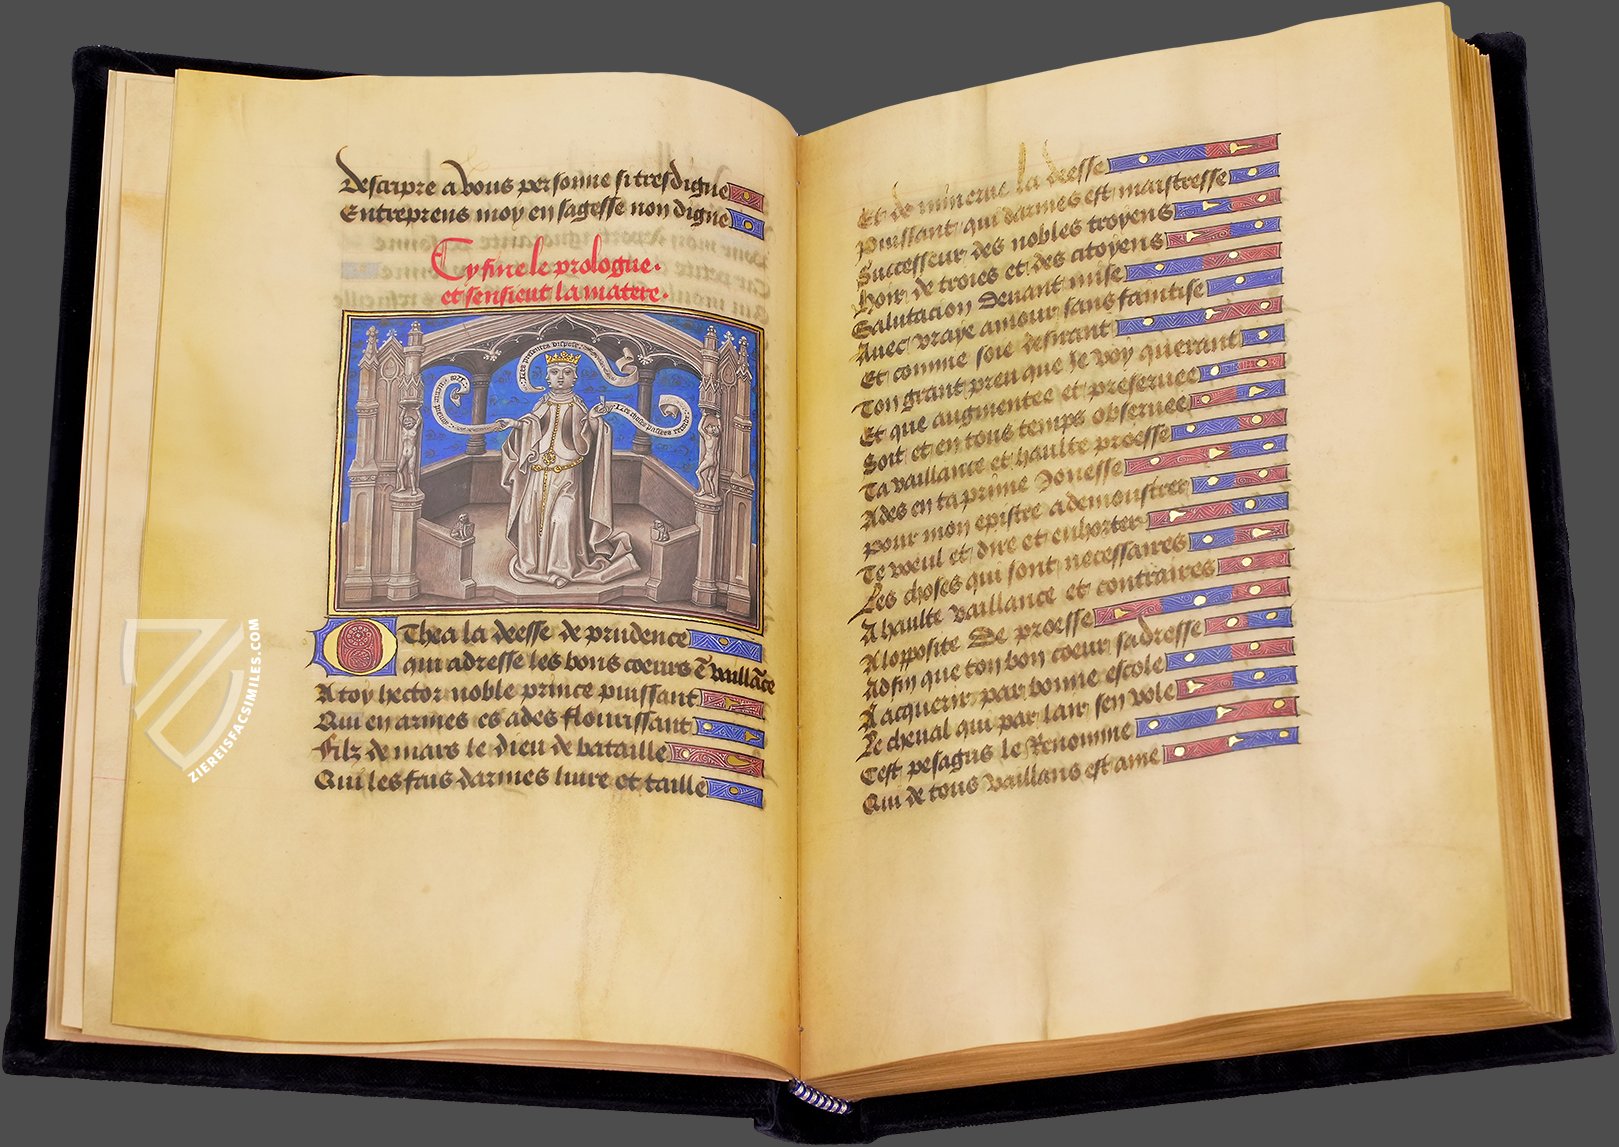 Descripre a vous personne si tresdigne
Entreprens moy en sagesse non digne
Cy fine le prologue.
et sensieut la matere.
Les presentes dispose
Les choses passees recorde
Othea la deesse de prudence
qui adresse les bons coeurs E vaillāce
A toy hector noble prince puissant
Qui en armes es ades flourissant
Filz de mars le dieu de bataille
Qui les fais darmes liure et taille
Et de minerue la deesse
Puissant qui darmes est maistresse
Successeur des nobles troyens
Hoir de troies et des citoyens
Salutacion Deuant mise
Auec vraye amour sans faintise
Et comme soie desirant
Ton grant preu que Je voy querant
Et que augmentee et preseruee
Soit et en tous temps obseruee
Ta vaillance et haulte proesse
Ades en ta prime Jonesse
pour mon epistre ademonstrer
Te voeul et dire et enhorter
Les choses qui sont necessaires
A haulte vaillance et contraires
A lopposite De proesse
Adfin que ton bon coeur sadresse
A acquerir par bonne escole
Le cheual qui par lair sen vole
Cest pesagus le Renomme
Qui de tous vaillans est ame
ZIEREISFACSIMILES.COM